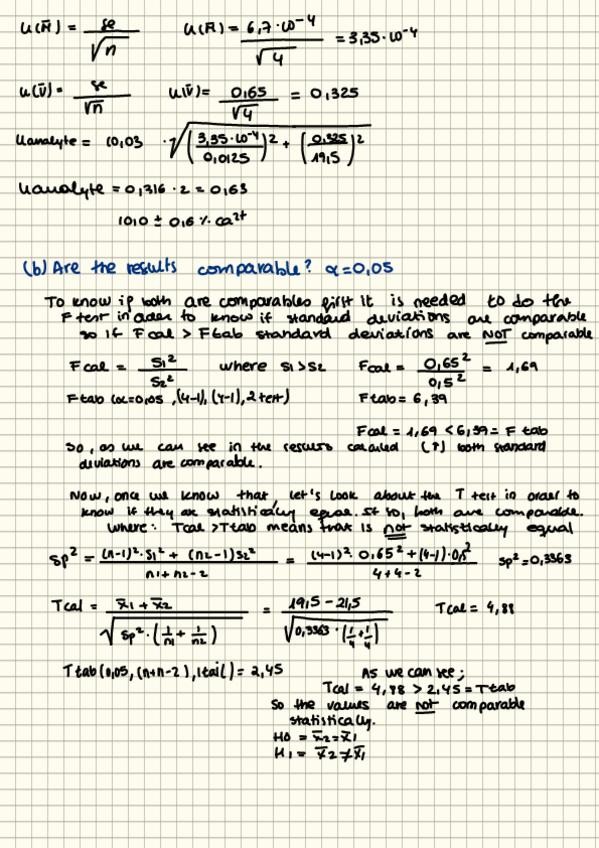 u(M̄) = se/√n    u(M̄) = 6,7·10⁻⁴/√4 = 3,35·10⁻⁴
u(V̄) = se/√n    u(V̄) = 0,65/√4 = 0,325
Uanalyte = 10,03 · √((3,35·10⁻⁴/0,0125)² + (0,325/19,5)²)
Uanalyte = 0,316 · 2 = 0,63
10,0 ± 0,6 % Ca²⁺
(b) Are the results comparable? α=0,05
To know if both are comparables first it is needed to do the
F test in order to know if standard deviations are comparable
so if Fcal > Ftab standard deviations are NOT comparable
Fcal = S₁²/S₂² where S₁>S₂    Fcal = 0,65²/0,5² = 1,69
Ftab (α=0,05, (4-1), (4-1), 2 test)    Ftab = 6,39
Fcal = 1,69 < 6,39 = F tab
So, as we can see in the results (↑) both standard
deviations are comparable.
Now, once we know that, let's look about the T test in order to
know if they are statistically equal. If so, both are comparable.
Where: Tcal > Ttab means that is not statistically equal
Sp² = ((n-1)²·S₁² + (n₂-1)S₂²)/(n1+n2-2) = ((4-1)²·0,65² + (4-1)·0,5²)/(4+4-2)    Sp² = 0,3363
Tcal = (x̄₁ + x̄₂)/√(Sp²·(1/n1 + 1/n2)) = (19,5 - 21,5)/√(0,3363·(1/4 + 1/4))    Tcal = 4,88
Ttab (0,05, (n+n-2), 1tail) = 2,45    As we can see;
Tcal = 4,88 > 2,45 = Ttab
So the values are not comparable
statistically.
H0 = x̄₂ = x̄₁
H1 = x̄₂ ≠ x̄₁